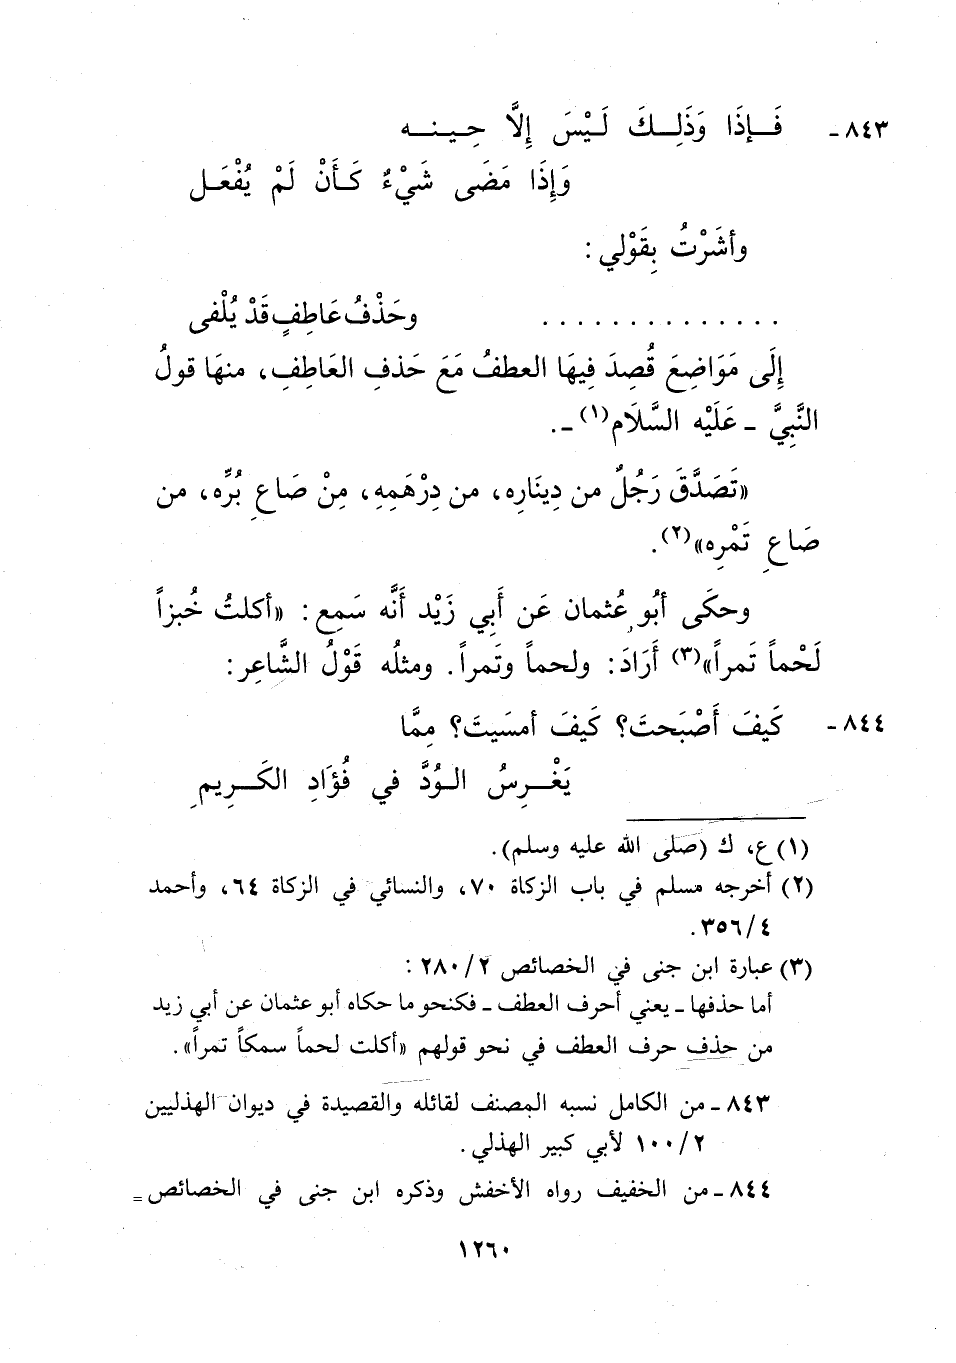 ٨٤٣- فَإِذَا وَذَلِكَ لَيْسَ إِلَّا حِينه
وَإِذَا مَضَى شَيْءٌ كَأَنْ لَمْ يُفْعَل
وأشَرْتُ بِقَوْلي :
. . . . . . . . . . . . . . وحَذْفُ عَاطِفٍ قَدْ يُلْفى
إِلَى مَوَاضِعَ قُصِدَ فِيهَا العطفُ مَعَ حَذفِ العَاطِفِ، منهَا قولُ
النَّبِيِّ ـ عَلَيْه السَّلَام(١) ـ.
«تَصَدَّقَ رَجُلٌ من دِينَارِه، من دِرْهَمِهِ، مِنْ صَاعِ بُرِّه، من
صَاعِ تَمْرِه»(٢).
وحكَى أبُو عُثمان عَن أَبِي زَيْد أَنَّه سَمِع : «أكلتُ خُبزاً
لَحْماً تَمراً»(٣) أَرَادَ : ولحماً وتَمراً. ومثلُه قَوْلُ الشَّاعِر :
٨٤٤- كَيفَ أَصْبَحتَ؟ كَيفَ أمسَيتَ؟ مِمَّا
يَغْرِسُ الوُدَّ في فُؤَادِ الكَرِيمِ
(١) ع، ك (صلى الله عليه وسلم).
(٢) أخرجه مسلم في باب الزكاة ٧٠، والنسائي في الزكاة ٦٤، وأحمد
٣٥٦/٤.
(٣) عبارة ابن جنى في الخصائص ٢٨٠/٢ :
أما حذفها ـ يعني أحرف العطف ـ فكنحو ما حكاه أبو عثمان عن أبي زيد
من حذف حرف العطف في نحو قولهم «أكلت لحماً سمكاً تمراً».
٨٤٣ ـ من الكامل نسبه المصنف لقائله والقصيدة في ديوان الهذليين
١٠٠/٢ لأبي كبير الهذلي.
٨٤٤ ـ من الخفيف رواه الأخفش وذكره ابن جنى في الخصائص =
١٢٦٠